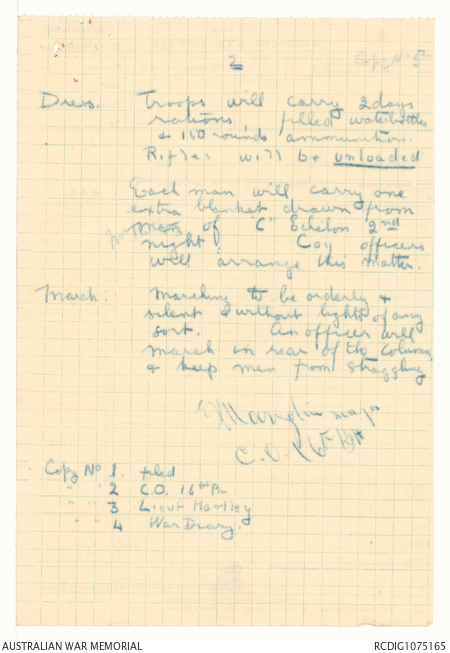 2
Copy No 5
Dress. Troops will carry 2 days
rations filled waterbottles
& 150 rounds ammunition.
Rifles will be unloaded
Each man will carry one
extra blanket drawn from
men of "C" Echelon 2nd
night Coy officers
will arrange this matter.
March: Marching to be orderly &
silent & without lights of any
sort. An officer will
march in rear of the column
& keep men from straggling
major
C.O.
Copy No 1. filed
" " 2 C.O. 16th Bn
" " 3 Lieut Hartley
" " 4 War Diary.
AUSTRALIAN WAR MEMORIAL
RCDIG1075165